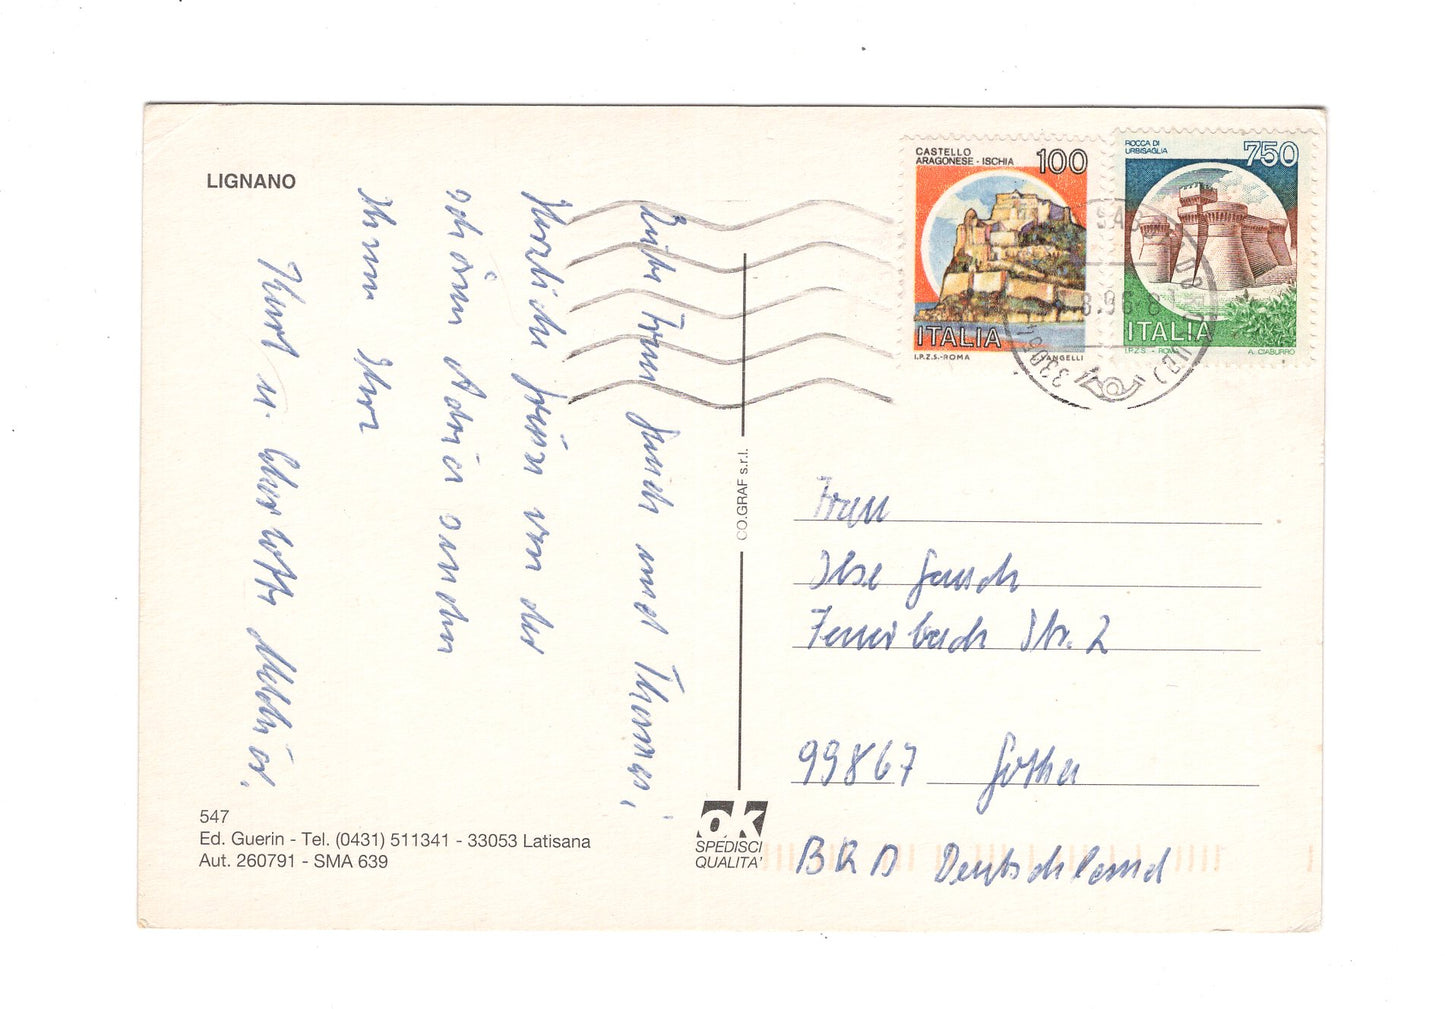 LIGNANO
Liebe Frau Jauch und Thomas,
Herzliche Grüße von der
schönen Adria senden
Ihnen Ihre
Kurt u. Charlotte
547
Ed. Guerin - Tel. (0431) 511341 - 33053 Latisana
Aut. 260791 - SMA 639
CO.GRAF s.r.l.
ok
SPEDISCI
QUALITA'
CASTELLO
ARAGONESE - ISCHIA
100
ITALIA
I.P.Z.S.-ROMA
VANGELLI
ROCCA DI
URBISAGLIA
750
ITALIA
I.P.Z.S. - ROMA A. CIABURRO
8.96
Frau
Ilse Jauch
Feuerbach Str. 2
99867 Gotha
BRD Deutschland